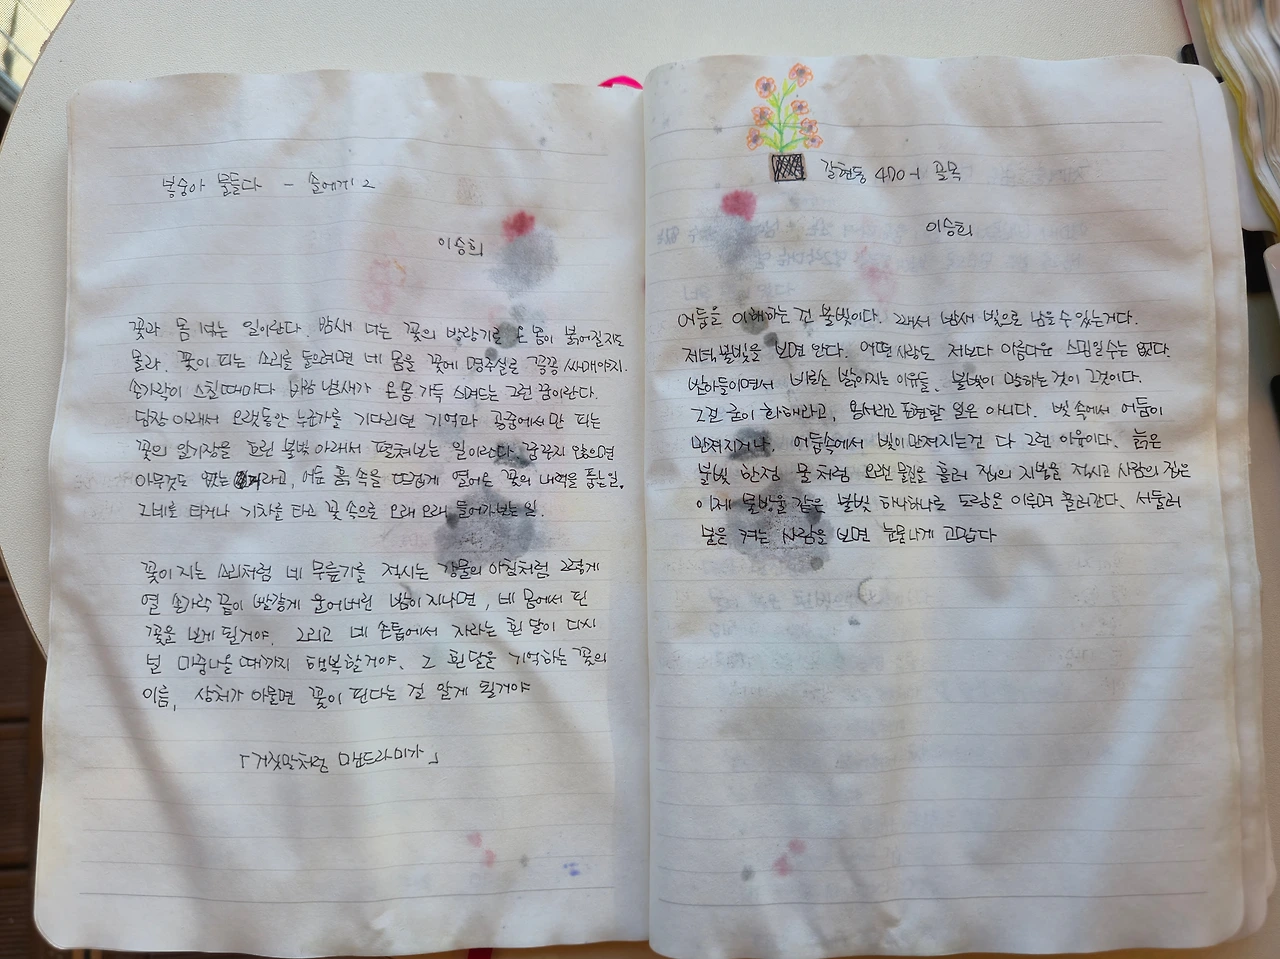 봉숭아 물들다 - 손에게 2
이승희
꽃과 몸 섞는 일이란다. 밤새 너는 꽃의 방랑기로 온 몸이 붉어질지도
몰라. 꽃이 피는 소리를 들으려면 네 몸을 꽃에 명주실로 꽁꽁 싸매야지.
손가락이 스칠 때마다 바람 냄새가 온 몸 가득 스며드는 그런 꿈이란다.
담장 아래서 오랫동안 누군가를 기다리던 기억과 공중에서만 피는
꽃의 일기장을 흐린 불빛 아래서 펼쳐보는 일이란다. 꿈꾸지 않으면
아무것도 없는 거라고, 어둔 흙 속을 뜨겁게 열어 꽃의 내력을 품는 일.
그네를 타거나 기차를 타고 꽃 속으로 오래 오래 들어가보는 일.
꽃이 지는 소리처럼 네 무릎가를 적시는 강물의 아침처럼 그렇게
열 손가락 끝이 발갛게 울어버린 밤이 지나면, 네 몸에서 핀
꽃을 보게 될거야. 그리고 네 손톱에서 자라는 흰 달이 다시
널 마중나올 때까지 행복할거야. 그 흰 달을 기억하는 꽃의
이름, 상처가 아물면 꽃이 핀다는 걸 알게 될거야
「거짓말처럼 맨드라미가」
갈현동 470-1 골목
이승희
어둠을 이해하는 건 불빛이다. 그래서 밤새 빛으로 남을 수 있는거다.
저녁 불빛을 보면 안다. 어떤 사랑도 저보다 아름다운 스밈일 수는 없다.
번하들이면서 비로소 밝아지는 이유들. 불빛이 말하는 것이 그것이다.
그걸 굳이 화해라고, 용서라고 표현할 일은 아니다. 빛 속에서 어둠이
만져지거나, 어둠속에서 빛이 만져지는건 다 그런 이유이다. 늙은
불빛 한점 물처럼 오랜 물길을 흘러 집의 지붕을 적시고 사람의 집은
이제 물방울 같은 불빛 하나하나로 도랑을 이루며 흘러간다. 서둘러
불을 켜는 사람을 보면 눈물나게 고맙다